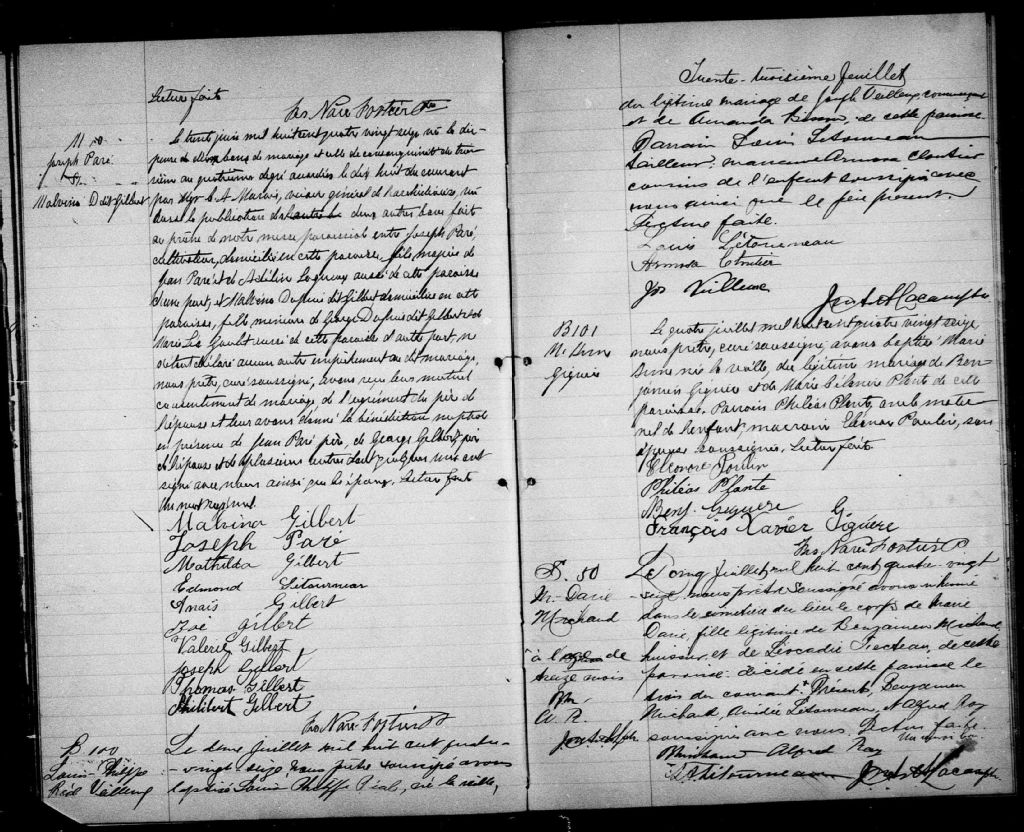 Lecture faite
Frs Narc. Fortier Ptre
M 50
Joseph Paré
&
Malvina D. dit Gilbert
Le trente juin mil huit cent quatre vingt seize vu la dis-
pense de bans de mariage et celle de consanguinité du troi-
sième au quatrième degré accordées le dix huit du courant
par Mgr C. A. Marois, vicaire général de l'archidiocèse, vu
aussi la publication de deux autres bans faite
au prône de notre messe paroissiale entre Joseph Paré,
cultivateur, domicilié en cette paroisse, fils majeur de
Jean Paré et de Adeline aussi de cette paroisse
d'une part, et Malvina Dupuis dit Gilbert domiciliée en cette
paroisse, fille mineure de George Dupuis dit Gilbert et de
Marie aussi de cette paroisse d'autre part, ne
déclaré aucun autre empêchement au dit mariage,
nous prêtre, curé soussigné, avons reçu leur mutuel
consentement de mariage de l'agrément du père de
l'épouse et leur avons donné la bénédiction nuptiale
en présence de Jean Paré père, de George Gilbert, père
de l'épouse et de plusieurs autres dont quelques uns ont
signé avec nous ainsi que les époux. Lecture faite
Malvina Gilbert
Joseph Paré
Mathilda Gilbert
Edmond Létourneau
Anaïs Gilbert
Zoé Gilbert
Valerie Gilbert
Joseph Gilbert
Thomas Gilbert
Philibert Gilbert
Frs Narc. Fortier Ptre
B 100
Louis Philippe
Réal Veilleux
Le deux juillet mil huit cent quatre-
-vingt seize, nous prêtre soussigné avons
baptisé Louis Philippe Réal, né la veille,
Trente-troisième feuillet
du légitime mariage de Joseph Veilleux, commerçant
et de Amanda de cette paroisse.
Parrain Louis Létourneau
tailleur, marraine Armosa Cloutier
cousins de l'enfant soussignés avec
nous ainsi que le père présent.
Lecture faite.
Louis Létourneau
Armosa Cloutier
Jos Veilleux
Lacampte
B 101
M.
Giguère
Le quatre juillet mil huit cent quatre vingt seize,
nous prêtre, curé soussigné, avons baptisé Marie
née la veille, du légitime mariage de Ben-
jamin Giguère et de Marie Plante de cette
paroisse. Parrain Philéas Plante, oncle mater-
nel de l'enfant, marraine Eléonore Poulin, son
épouse soussignés. Lecture faite
Eléonore Poulin
Philéas Plante
Benj. Giguère
François Xavier Giguère
Frs Narc. Fortier P
S. 50
M. Marie
Michaud
à l'age de
treize mois
Le cinq juillet mil huit cent quatre-vingt
seize, nous prêtre soussigné avons inhumé
dans le cimetière du lieu le corps de Marie
fille légitime de Benjamin Michaud
huissier et de Léocadie Trecteau, de cette
paroisse décédée en cette paroisse le
trois du courant. Présents, Benjamin
Michaud, Létourneau, Alfred Roy
soussignés avec nous. Lecture faite.
Michaud Alfred Roy
Létourneau Lacampte